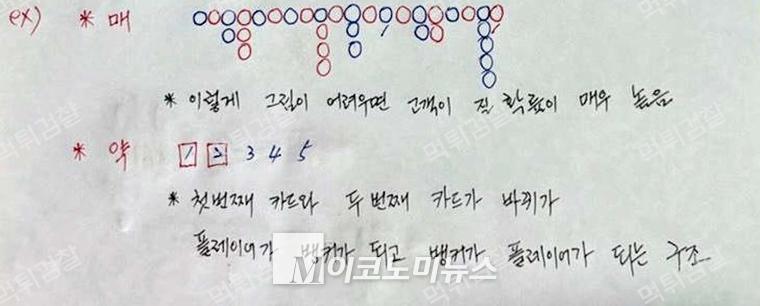 ex) * 매
* 이렇게 그림이 어려우면 고객이 질 확률이 매우 높음
* 약 1 2 3 4 5
* 첫번째 카드와 두번째 카드가 바뀌가
플레이어가 뱅커가 되고 뱅커가 플레이어가 되는 구조
M이코노미뉴스
먹튀검찰